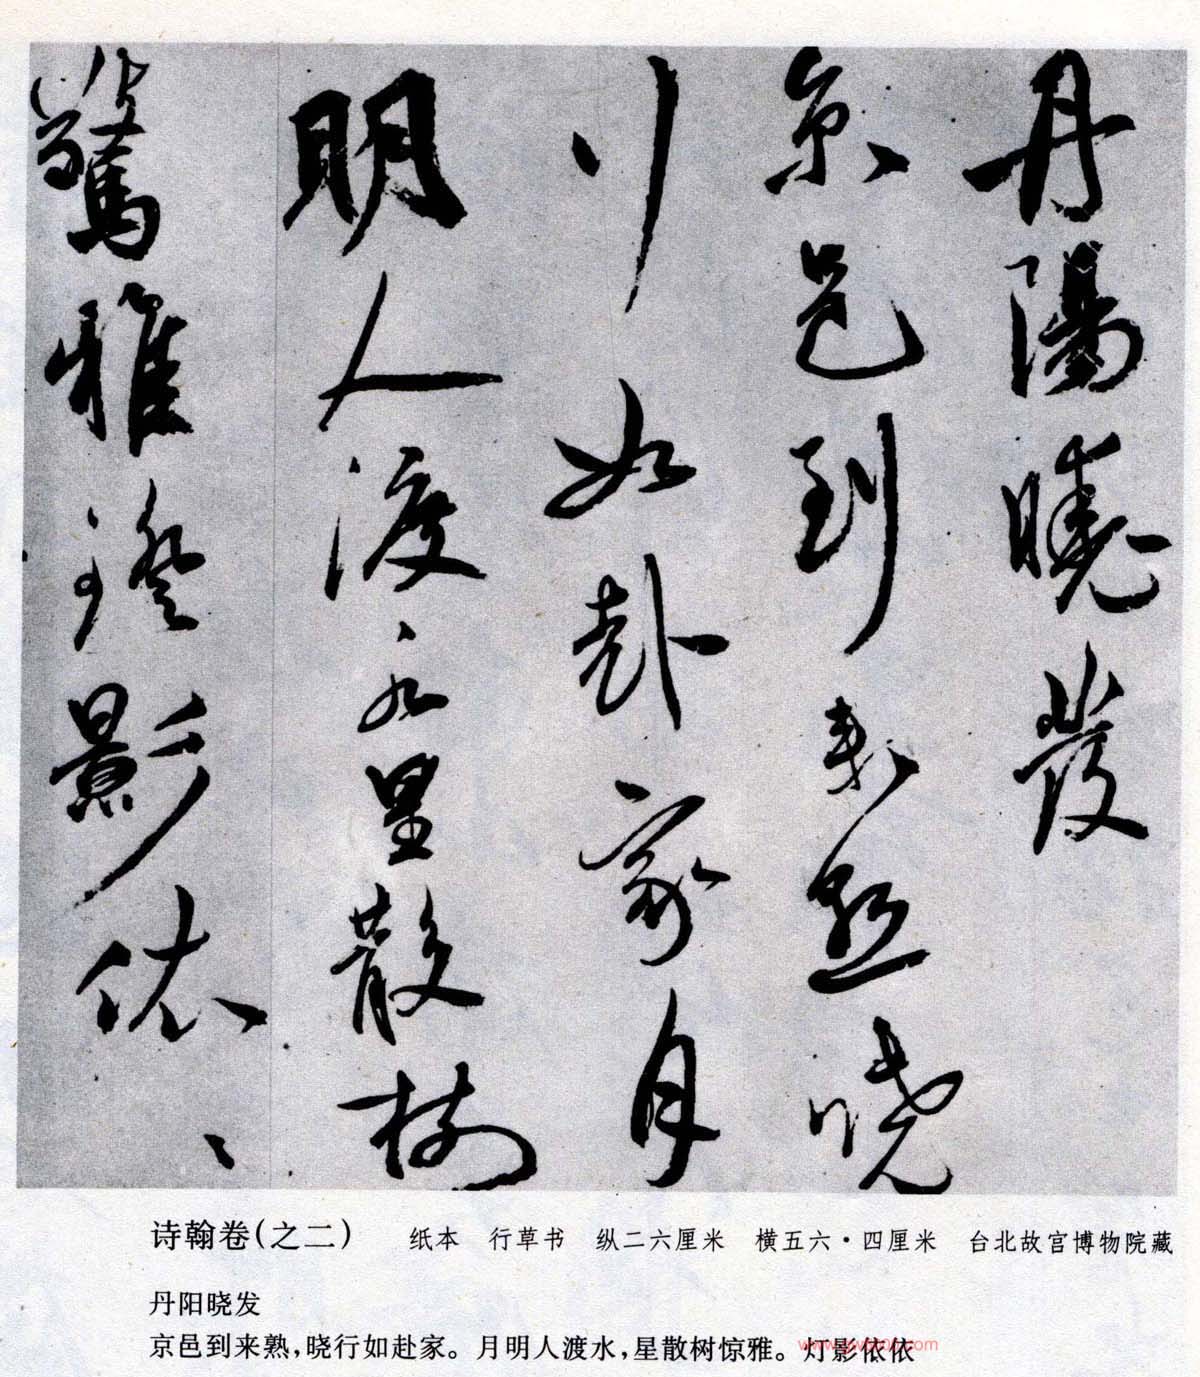 丹陽曉發
京邑到来熟曉
行如赴家月
明人渡水星散樹
驚雅燈影依、
诗翰卷(之二) 纸本 行草书 纵二六厘米 横五六·四厘米 台北故宫博物院藏
丹阳晓发
京邑到来熟,晓行如赴家。月明人渡水,星散树惊雅。灯影依依